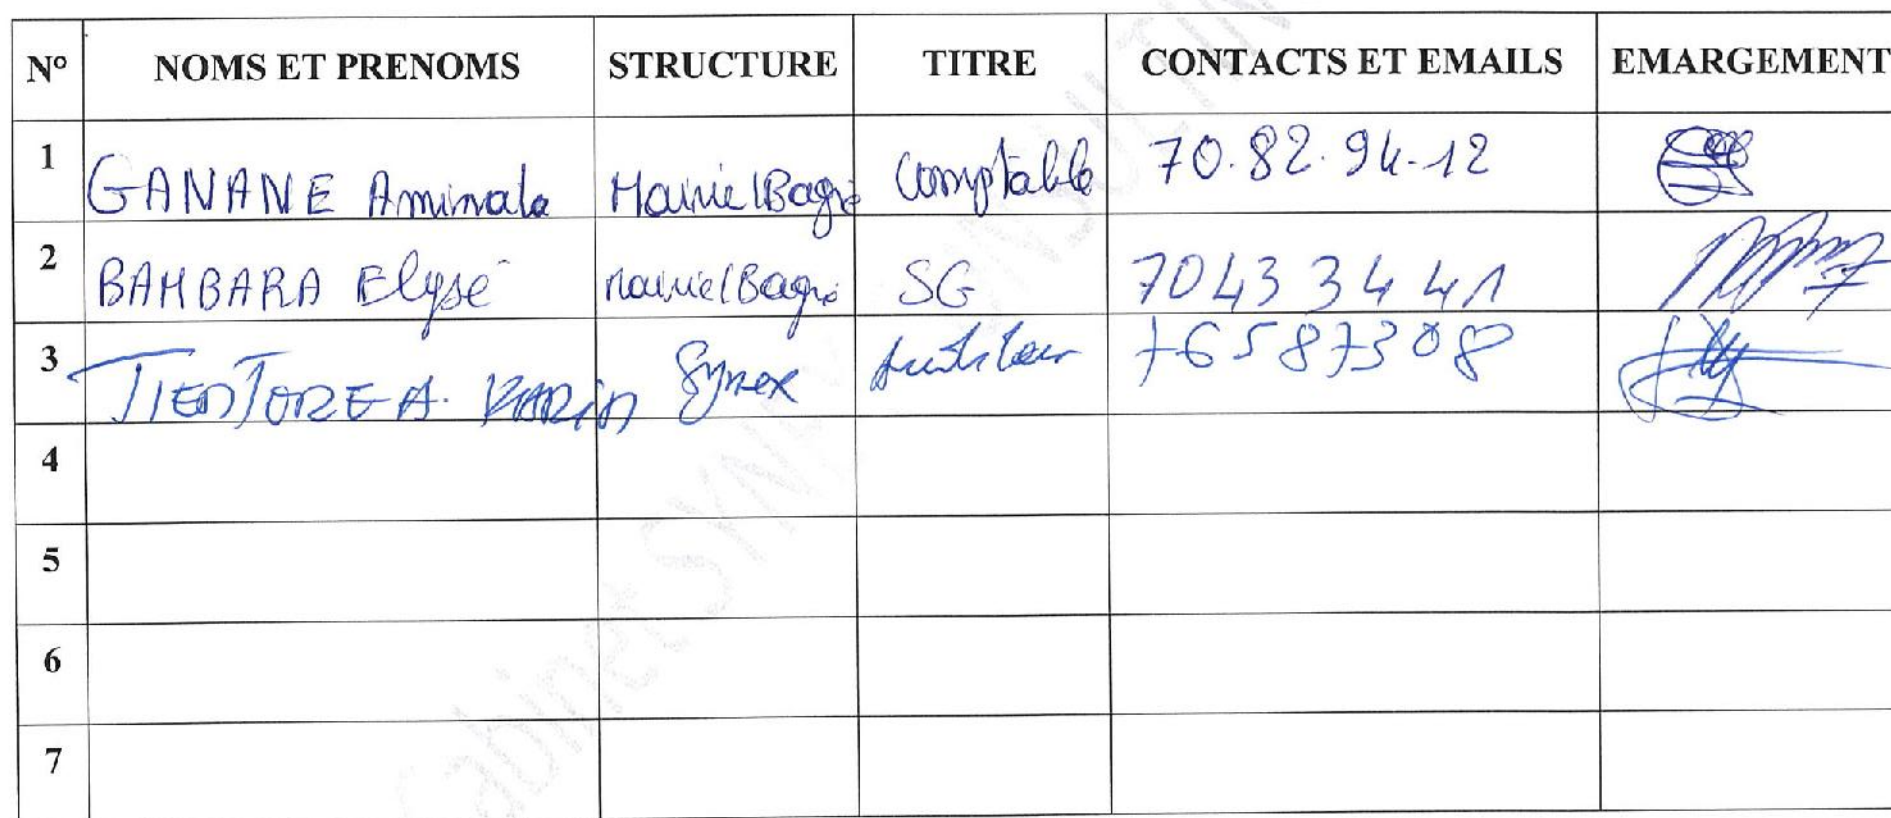 N° NOMS ET PRENOMS STRUCTURE TITRE CONTACTS ET EMAILS EMARGEMENT
1 GANANE Aminata Mairie/Bagré Comptable 70.82.94.12
2 BAMBARA Elysé Mairie/Bagré SG 70433441
3 A. KARIM Synex 76587308
4
5
6
7
Cabinet SYNEX